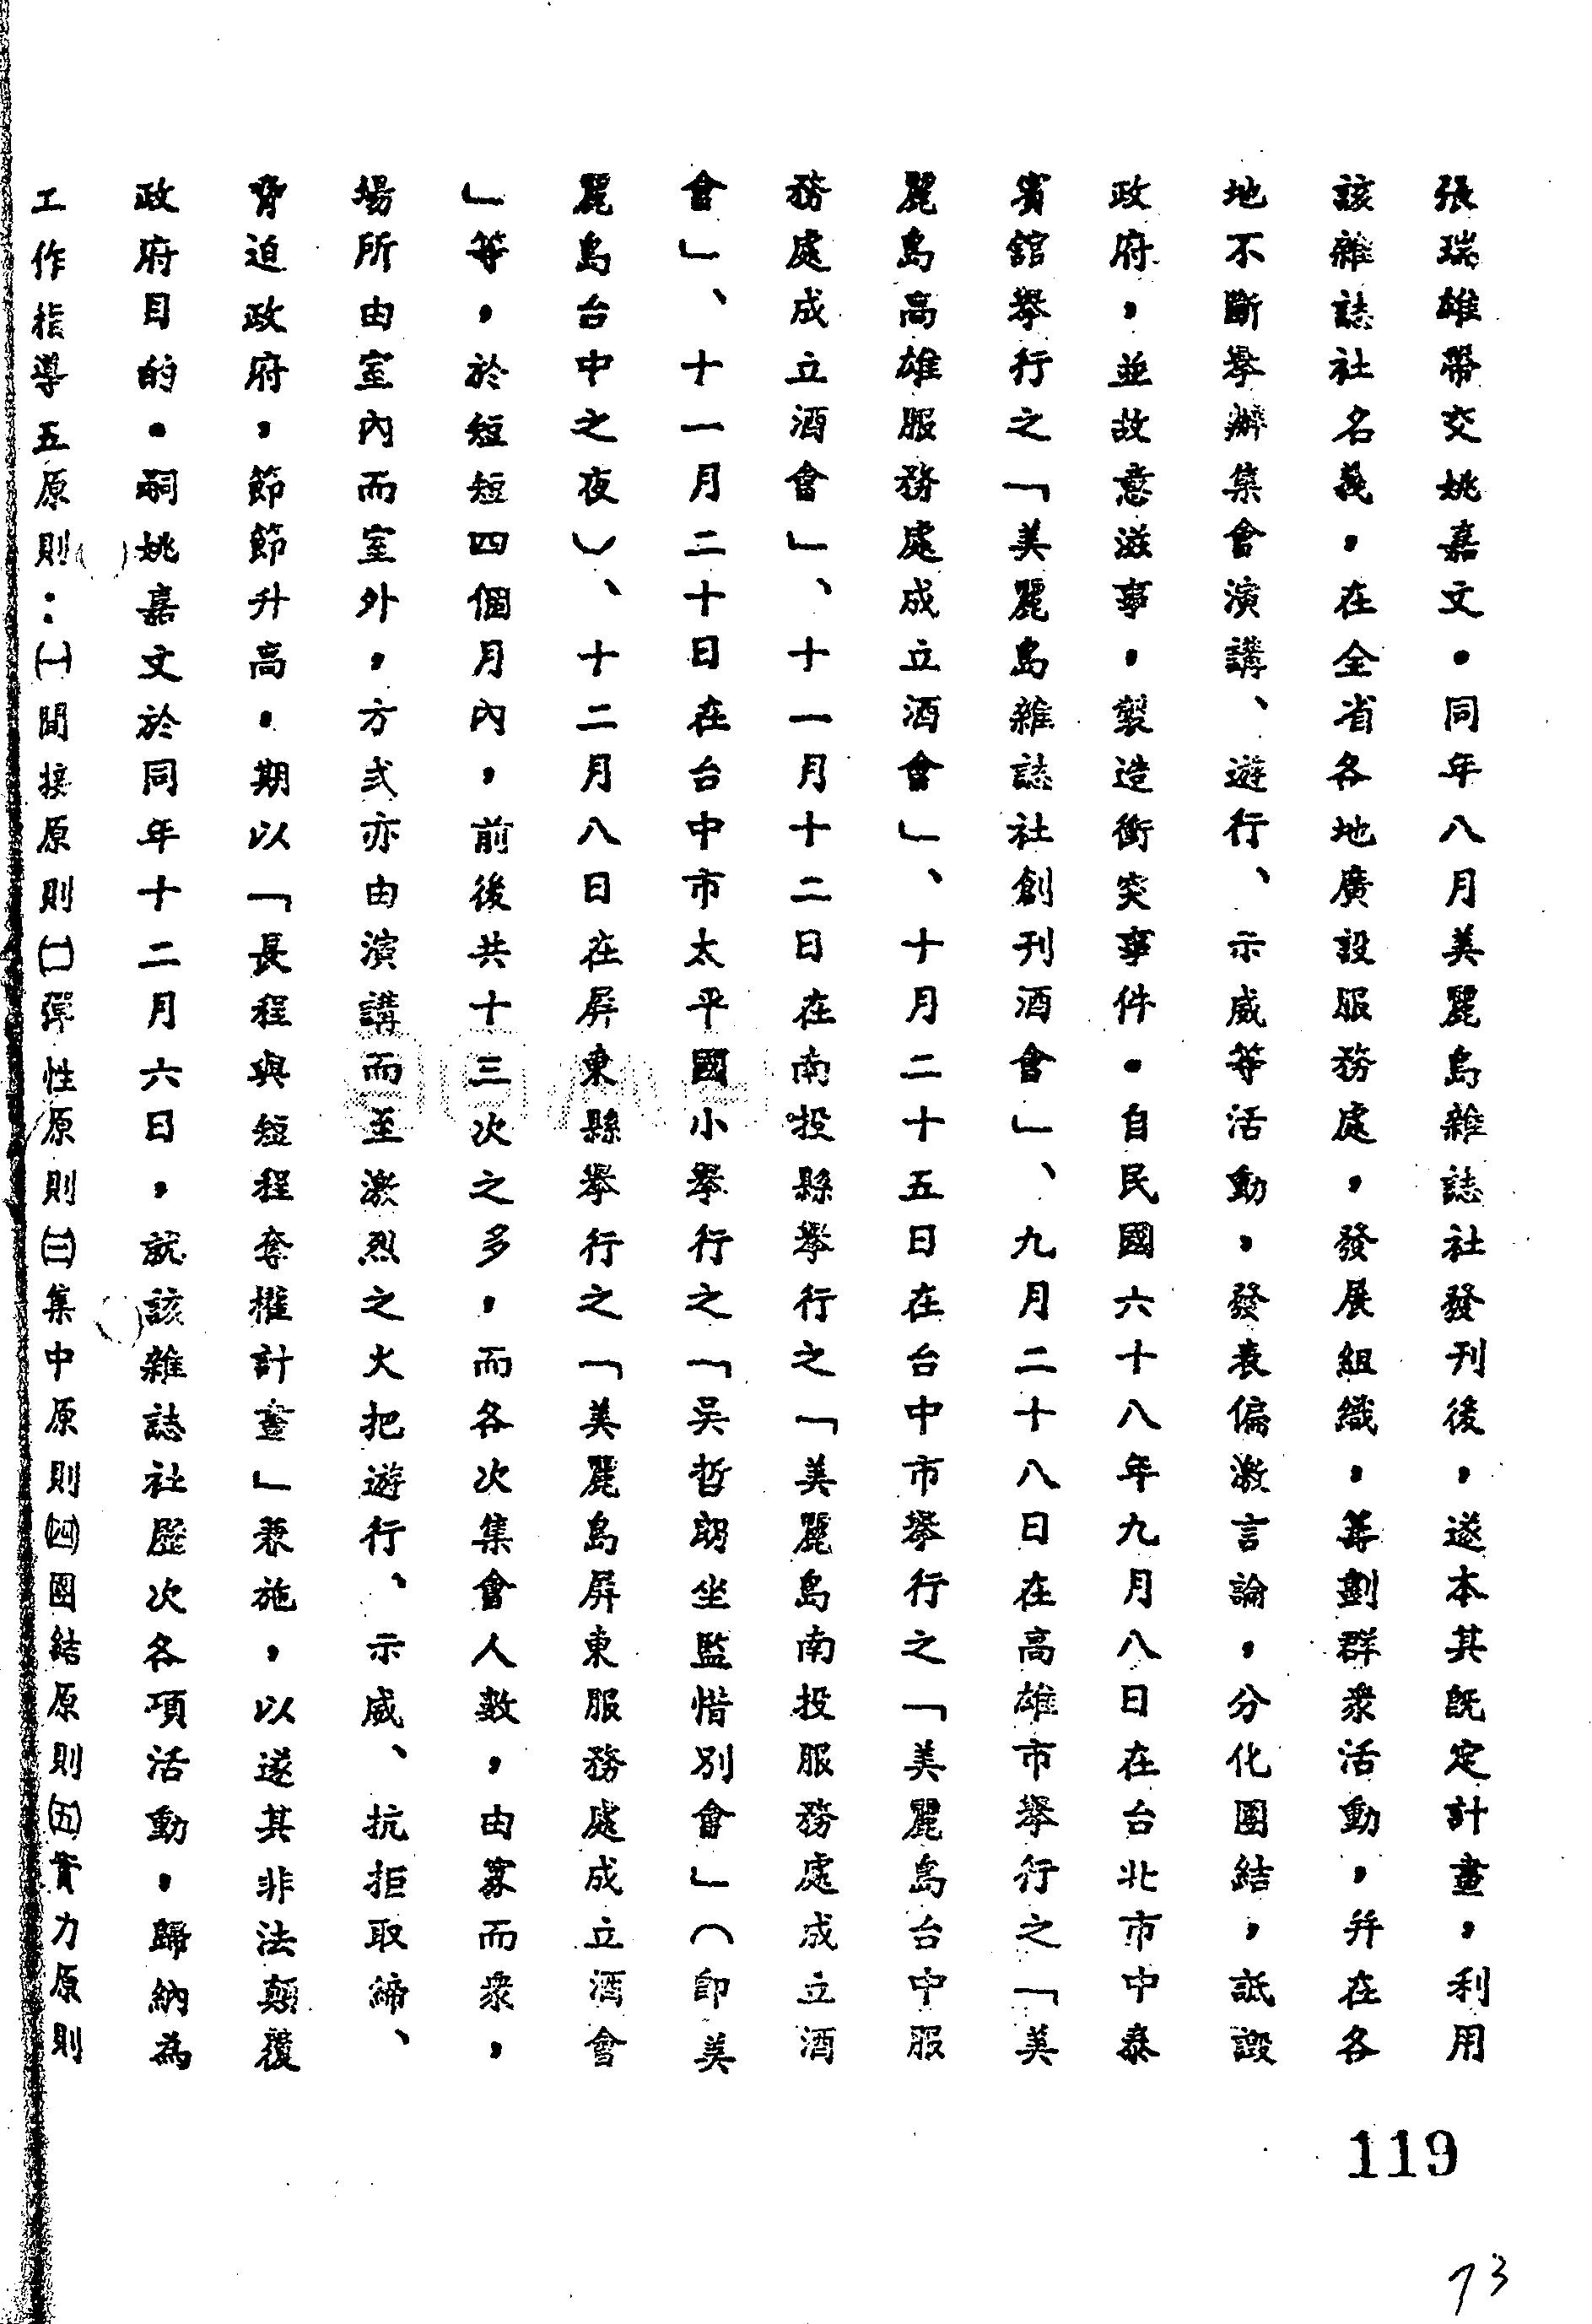 張瑞雄帶交姚嘉文。同年八月美麗島雜誌社發刊後，遂本其既定計畫，利用
該雜誌社名義，在全省各地廣設服務處，發展組織，籌劃群衆活動，并在各
地不斷舉辦集會演講、遊行、示威等活動，發表偏激言論，分化團結，詆譭
政府，並故意滋事，製造衝突事件。自民國六十八年九月八日在台北市中泰
賓館舉行之「美麗島雜誌社創刊酒會」、九月二十八日在高雄市舉行之「美
麗島高雄服務處成立酒會」、十月二十五日在台中市舉行之「美麗島台中服
務處成立酒會」、十一月十二日在南投縣舉行之「美麗島南投服務處成立酒
會」、十一月二十日在台中市太平國小舉行之「吳哲朗坐監惜別會」（即美
麗島台中之夜）、十二月八日在屏東縣舉行之「美麗島屏東服務處成立酒會
」等，於短短四個月內，前後共十三次之多，而各次集會人數，由寡而衆，
場所由室內而室外，方式亦由演講而至激烈之火把遊行、示威、抗拒取締、
脅迫政府，節節升高。期以「長程與短程奪權計畫」兼施，以遂其非法顛覆
政府目的。嗣姚嘉文於同年十二月六日，就該雜誌社歷次各項活動，歸納為
工作指導五原則：㈠間接原則㈡彈性原則㈢集中原則㈣團結原則㈤實力原則
119
73